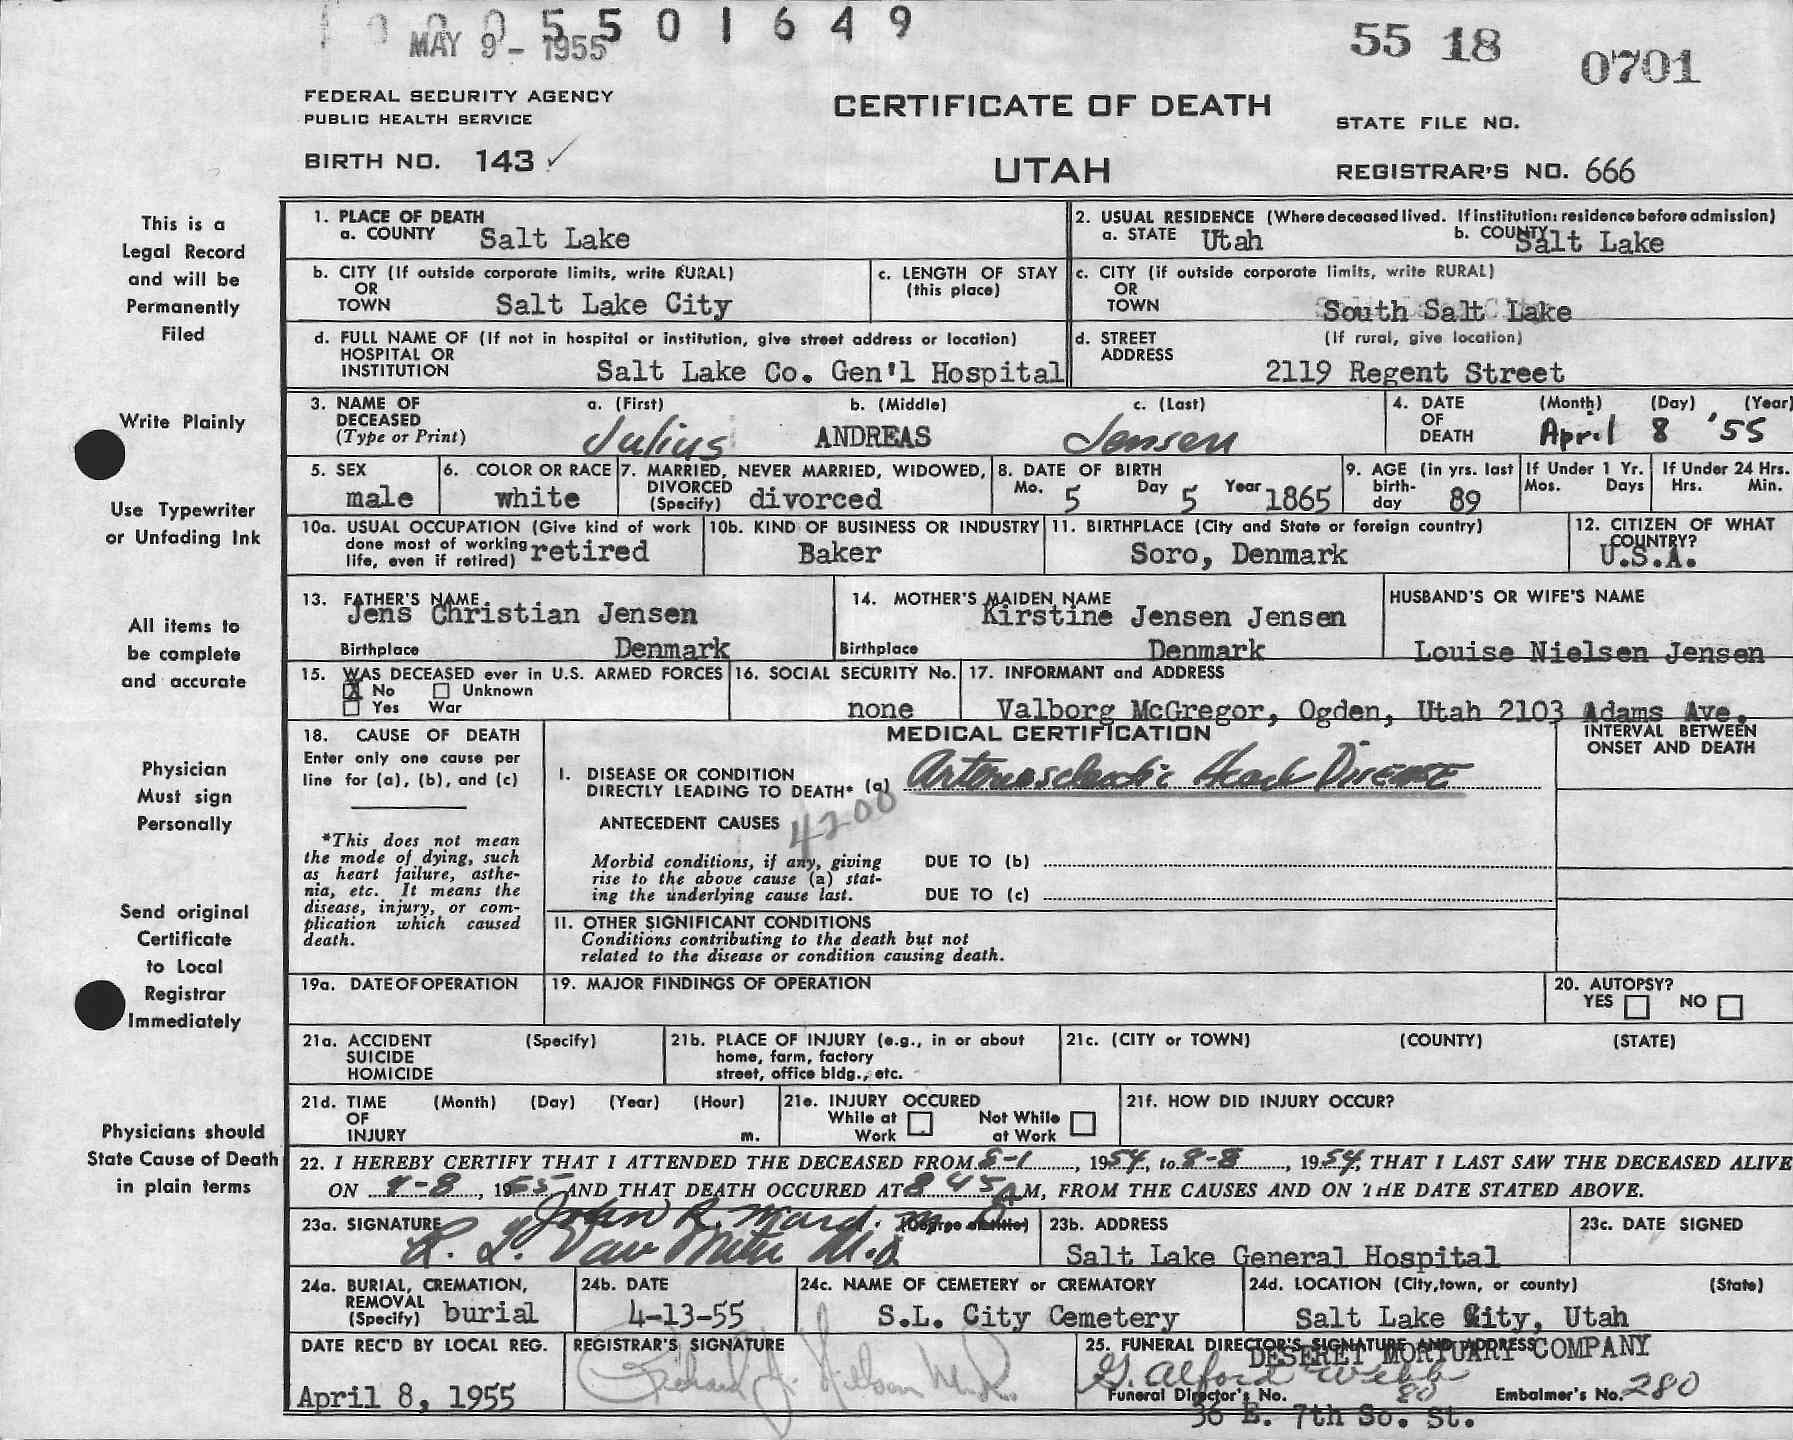 5501649
MAY 9 - 1955
55 18 0701
FEDERAL SECURITY AGENCY
PUBLIC HEALTH SERVICE
CERTIFICATE OF DEATH
STATE FILE NO.
BIRTH NO. 143 ✓
UTAH
REGISTRAR'S NO. 666
This is a
Legal Record
and will be
Permanently
Filed
Write Plainly
Use Typewriter
or Unfading Ink
All items to
be complete
and accurate
Physician
Must sign
Personally
Send original
Certificate
to Local
Registrar
Immediately
Physicians should
State Cause of Death
in plain terms
1. PLACE OF DEATH
a. COUNTY Salt Lake
2. USUAL RESIDENCE (Where deceased lived. If institution: residence before admission)
a. STATE Utah b. COUNTY Salt Lake
b. CITY (If outside corporate limits, write RURAL)
OR
TOWN Salt Lake City
c. LENGTH OF STAY
(this place)
c. CITY (if outside corporate limits, write RURAL)
OR
TOWN South Salt Lake
d. FULL NAME OF (If not in hospital or institution, give street address or location)
HOSPITAL OR
INSTITUTION Salt Lake Co. Gen'l Hospital
d. STREET (If rural, give location)
ADDRESS
2119 Regent Street
3. NAME OF a. (First) b. (Middle) c. (Last)
DECEASED
(Type or Print) Julius ANDREAS Jensen
4. DATE (Month) (Day) (Year)
OF
DEATH April 8 '55
5. SEX
male
6. COLOR OR RACE
white
7. MARRIED, NEVER MARRIED, WIDOWED,
DIVORCED
(Specify) divorced
8. DATE OF BIRTH
Mo. 5 Day 5 Year 1865
9. AGE (in yrs. last
birth-
day 89
If Under 1 Yr.
Mos. Days
If Under 24 Hrs.
Hrs. Min.
10a. USUAL OCCUPATION (Give kind of work
done most of working
life, even if retired) retired
10b. KIND OF BUSINESS OR INDUSTRY
Baker
11. BIRTHPLACE (City and State or foreign country)
Soro, Denmark
12. CITIZEN OF WHAT
COUNTRY?
U.S.A.
13. FATHER'S NAME
Jens Christian Jensen
Birthplace Denmark
14. MOTHER'S MAIDEN NAME
Kirstine Jensen Jensen
Birthplace Denmark
HUSBAND'S OR WIFE'S NAME
Louise Nielsen Jensen
15. WAS DECEASED ever in U.S. ARMED FORCES
X No Unknown
Yes War
16. SOCIAL SECURITY No.
none
17. INFORMANT and ADDRESS
Valborg McGregor, Ogden, Utah 2103 Adams Ave.
18. CAUSE OF DEATH
Enter only one cause per
line for (a), (b), and (c)
*This does not mean
the mode of dying, such
as heart failure, asthe-
nia, etc. It means the
disease, injury, or com-
plication which caused
death.
MEDICAL CERTIFICATION
INTERVAL BETWEEN
ONSET AND DEATH
I. DISEASE OR CONDITION
DIRECTLY LEADING TO DEATH* (a) Arteriosclerotic Heart Disease
4200
ANTECEDENT CAUSES
Morbid conditions, if any, giving
rise to the above cause (a) stat-
ing the underlying cause last.
DUE TO (b)
DUE TO (c)
II. OTHER SIGNIFICANT CONDITIONS
Conditions contributing to the death but not
related to the disease or condition causing death.
19a. DATE OF OPERATION
19. MAJOR FINDINGS OF OPERATION
20. AUTOPSY?
YES NO
21a. ACCIDENT (Specify)
SUICIDE
HOMICIDE
21b. PLACE OF INJURY (e.g., in or about
home, farm, factory
street, office bldg., etc.
21c. (CITY or TOWN) (COUNTY) (STATE)
21d. TIME (Month) (Day) (Year) (Hour)
OF
INJURY m.
21e. INJURY OCCURED
While at Work Not While at Work
21f. HOW DID INJURY OCCUR?
22. I HEREBY CERTIFY THAT I ATTENDED THE DECEASED FROM 8-1, 1954, to 8-8, 1954, THAT I LAST SAW THE DECEASED ALIVE
ON 4-8, 1955 AND THAT DEATH OCCURED AT 8 45 A M, FROM THE CAUSES AND ON THE DATE STATED ABOVE.
23a. SIGNATURE John R. Ward. M.D. (Degree or title)
M.D.
23b. ADDRESS
Salt Lake General Hospital
23c. DATE SIGNED
24a. BURIAL, CREMATION,
REMOVAL
(Specify) burial
24b. DATE
4-13-55
24c. NAME OF CEMETERY or CREMATORY
S.L. City Cemetery
24d. LOCATION (City, town, or county) (State)
Salt Lake City, Utah
DATE REC'D BY LOCAL REG.
April 8, 1955
REGISTRAR'S SIGNATURE
25. FUNERAL DIRECTOR'S SIGNATURE AND ADDRESS
DESERET MORTUARY COMPANY
G. Alford Webb
Funeral Director's No. 80 Embalmer's No. 280
36 E. 7th So. St.